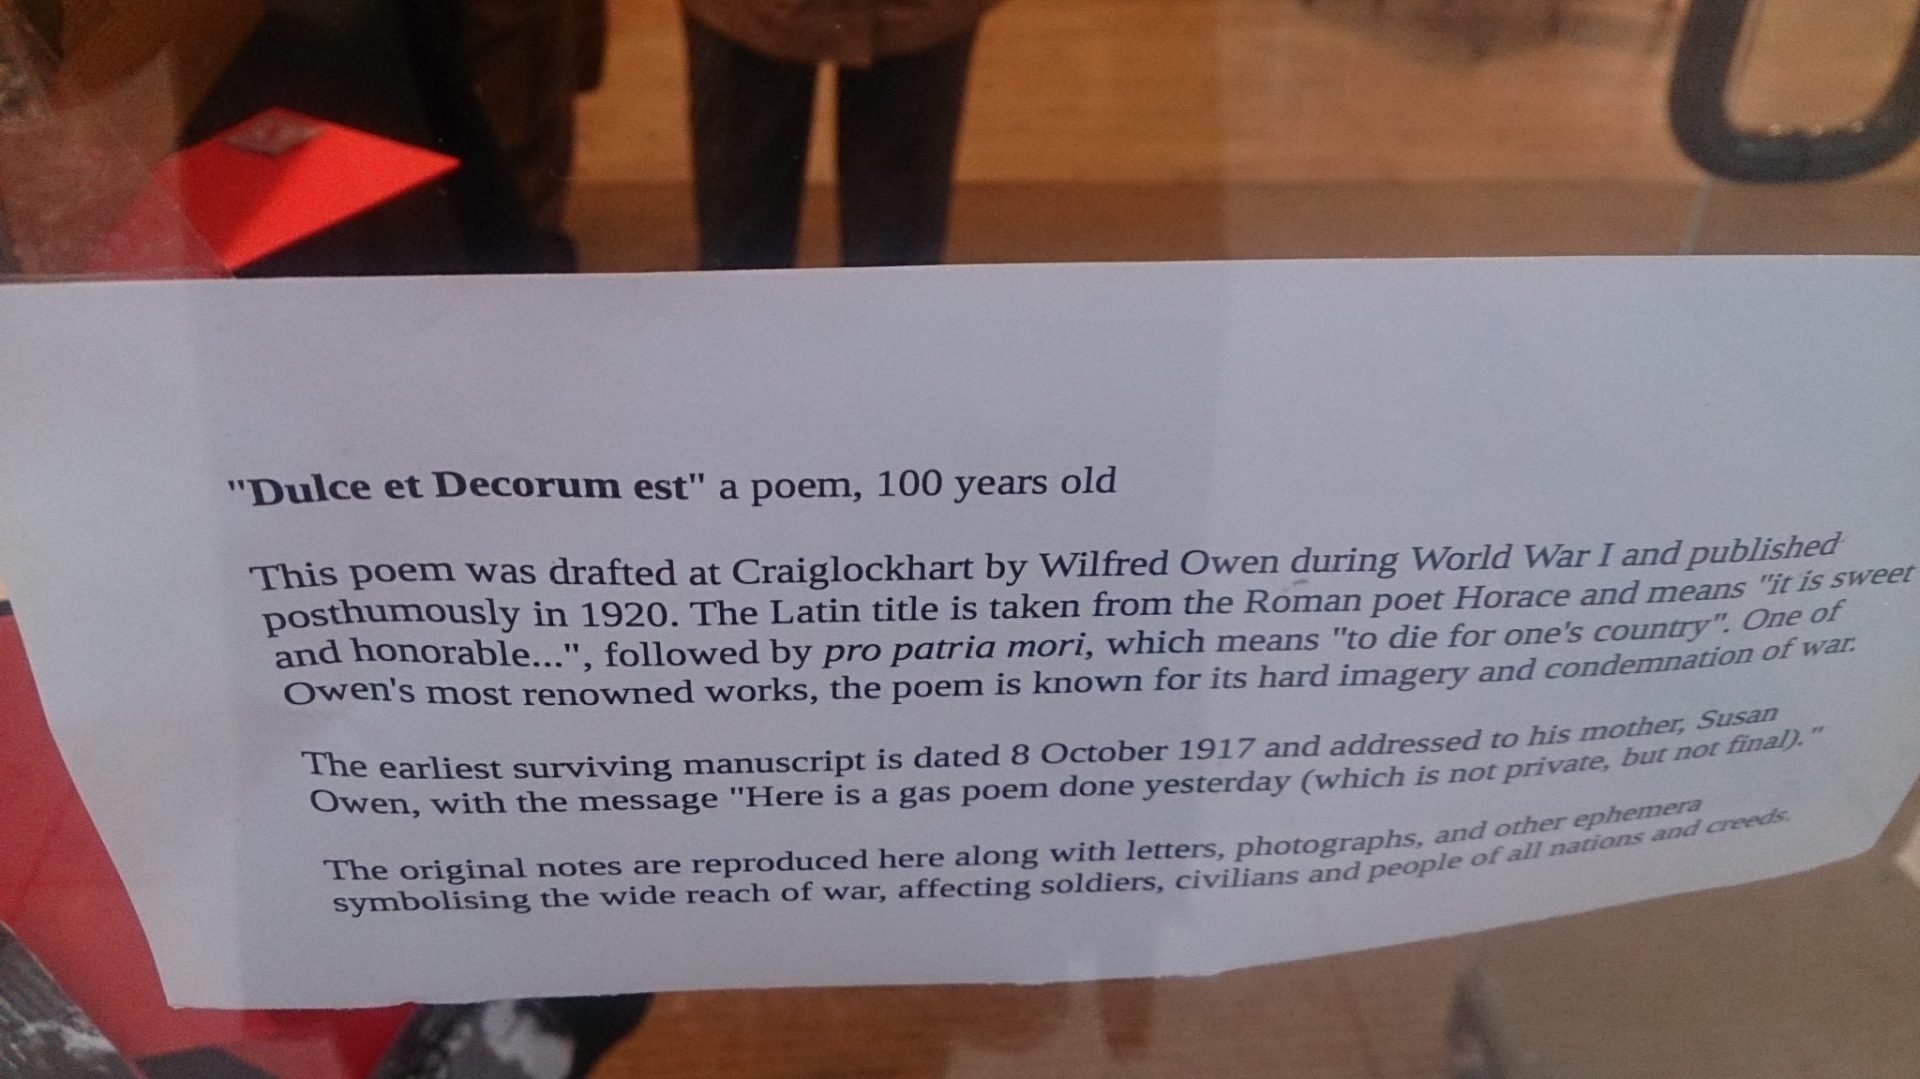 "Dulce et Decorum est" a poem, 100 years old
This poem was drafted at Craiglockhart by Wilfred Owen during World War I and published
posthumously in 1920. The Latin title is taken from the Roman poet Horace and means "it is sweet
and honorable...", followed by pro patria mori, which means "to die for one's country". One of
Owen's most renowned works, the poem is known for its hard imagery and condemnation of war.
The earliest surviving manuscript is dated 8 October 1917 and addressed to his mother, Susan
Owen, with the message "Here is a gas poem done yesterday (which is not private, but not final)."
The original notes are reproduced here along with letters, photographs, and other ephemera
symbolising the wide reach of war, affecting soldiers, civilians and people of all nations and creeds.